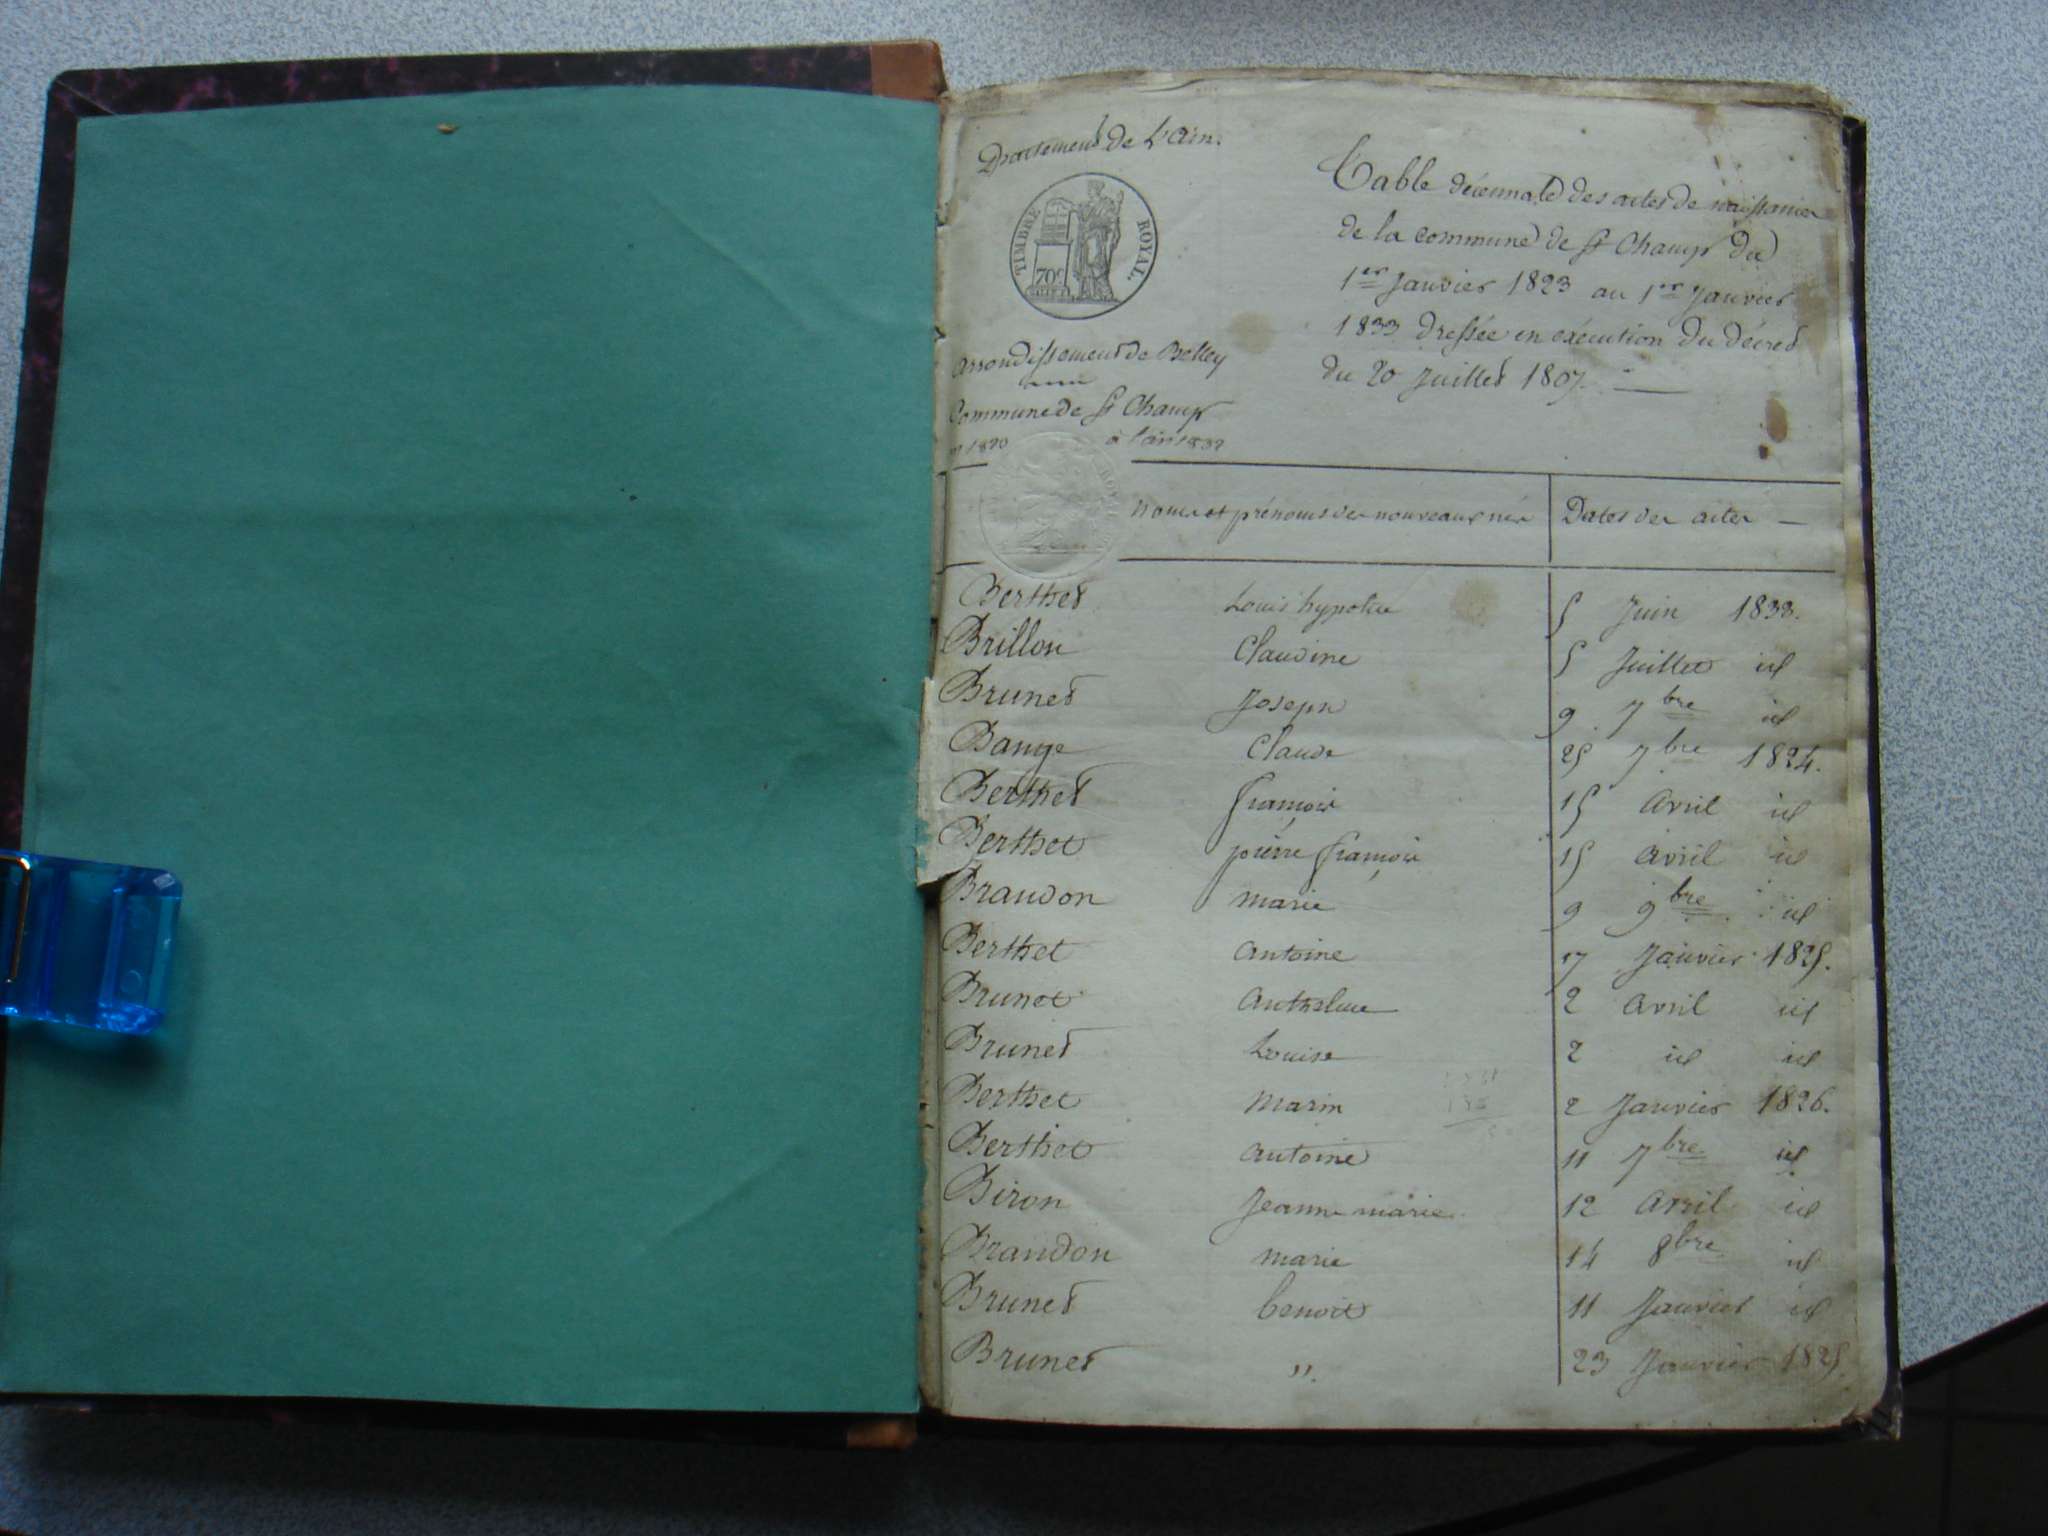 Département de L'ain.
TIMBRE ROYAL.
70c
arrondissement de Belley
Commune de St Champ
1820 à l'an 1832
Table décennale des actes de naissances
de la commune de St Champ du
1er Janvier 1823 au 1er Janvier
1833 dressée en exécution du décret
du 20 Juillet 1807.
noms et prénoms des nouveaux nés Dates des actes
Berthet Louis hypolite 5 Juin 1833.
Brillon Claudine 5 Juillet id
Brunet Joseph 9 7bre id
Bange Claude 25 7bre 1824.
Berthet françois 15 avril id
Berthet pierre françois 15 avril id
Braudon marie 9 9bre id
Berthet antoine 17 Janvier 1825.
Brunet anthelme 2 avril id
Brunet Louise 2 id id
Berthet marin 2 Janvier 1826.
Berthet antoine 11 7bre id
Biron Jeanne marie 12 avril id
Brandon marie 14 8bre id
Brunet benoit 11 Janvier id
Brunet ". 23 Janvier 1825.